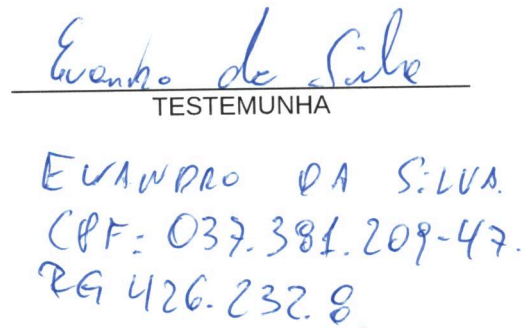 Evandro da Silva
TESTEMUNHA
EVANDRO DA SILVA.
CPF: 037.381.209-47.
RG 426.232.8